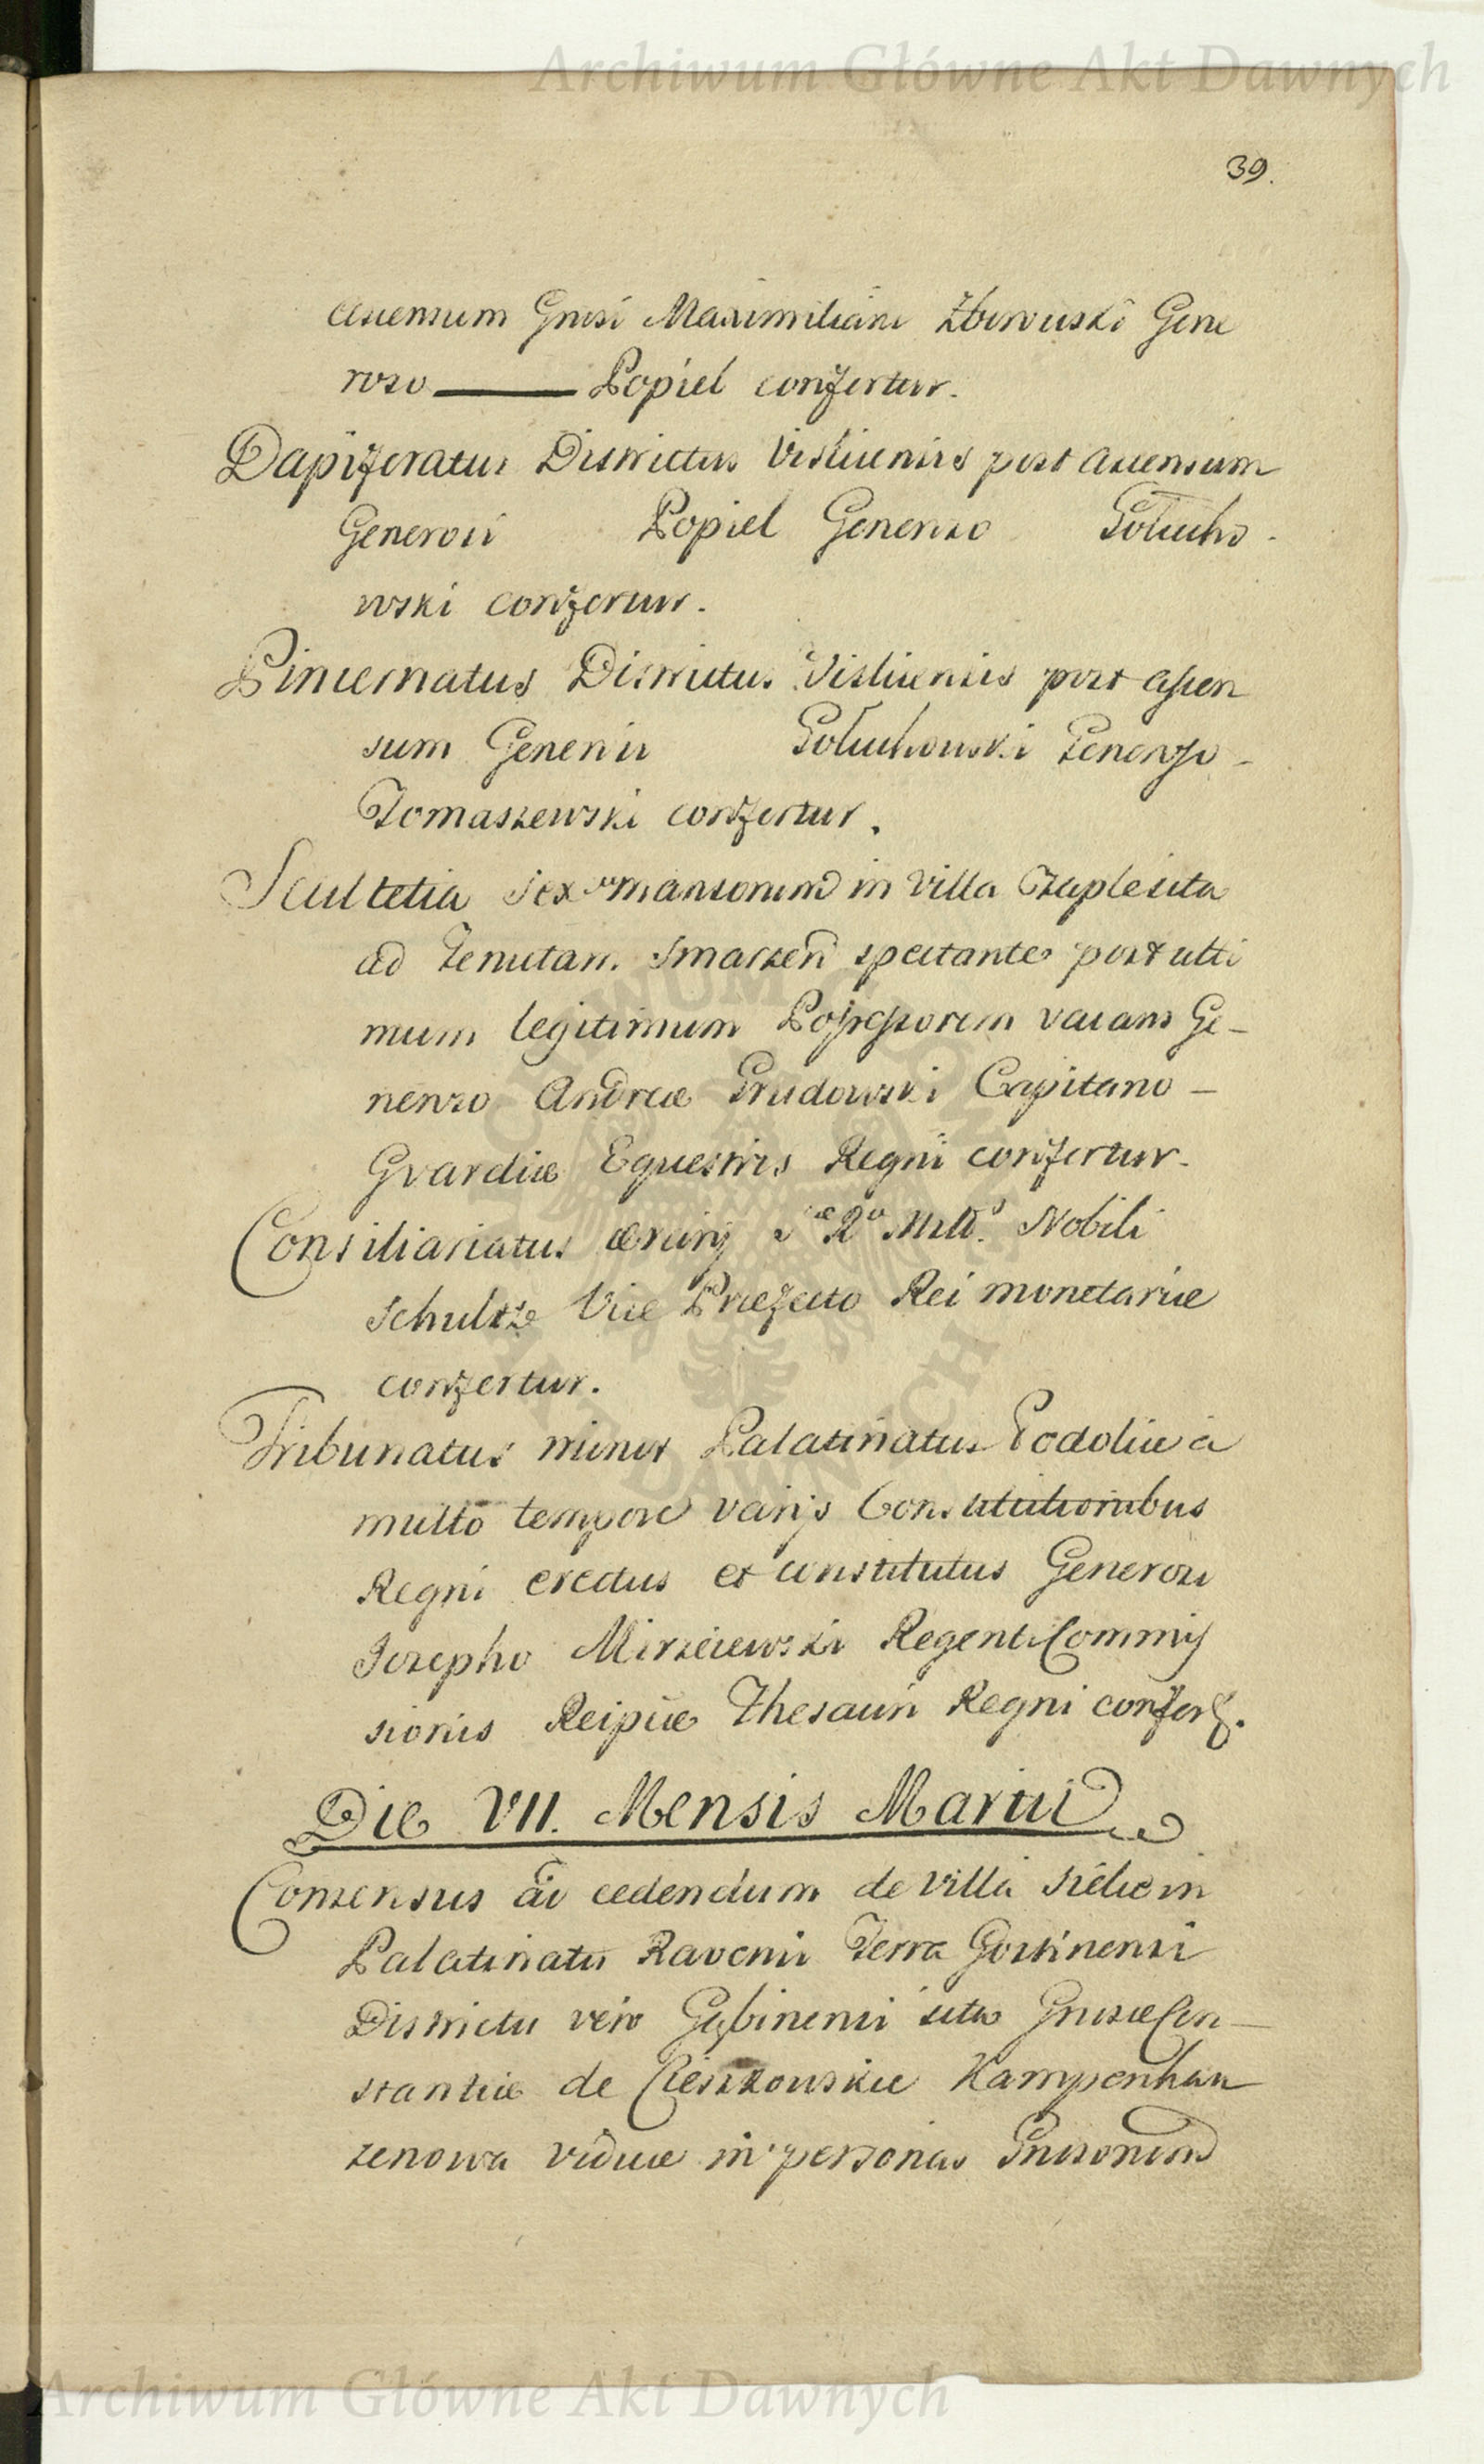 Archiwum Główne Akt Dawnych
39.
ascensum Gnrsi Maximiliani Zborowski Gene
roso Popiel confertur.
Dapiferatus Districtus Visliciensis post ascensum
Generosi Popiel Generoso Gołucho
wski confertur.
Pincernatus Districtus Visliciensis post assen
sum Generosi Gołuchowski Generoso
Tomaszewski confertur.
Scultetia sex mansorum in Villa sita
ad Tenutam spectante post ulti
mum legitimum Possessorem vacans Ge-
neroso Andreæ Capitano
Gvardiæ Equestris Regni confertur.
Consiliariatus ærarij Nobili
Schultze Vice Præfecto Rei monetariæ
confertur.
Tribunatus minor Palatinatus Podoliæ a
multo tempore varijs Constitutionibus
Regni erectus et constitutus Generoso
Josepho Regenti Commis
sionis Reipūæ Thesauri Regni confert.
Die VII. Mensis Martii
Consensus ad cedendum de villa in
Palatinatu Ravensi Terra Gostinensi
Districtu vero Gąbinensi sita Gnrosæ Con-
stantiæ de Cieszkowskie Kampenhau
zenowa viduæ in personas Gnrsorum
Archiwum Główne Akt Dawnych